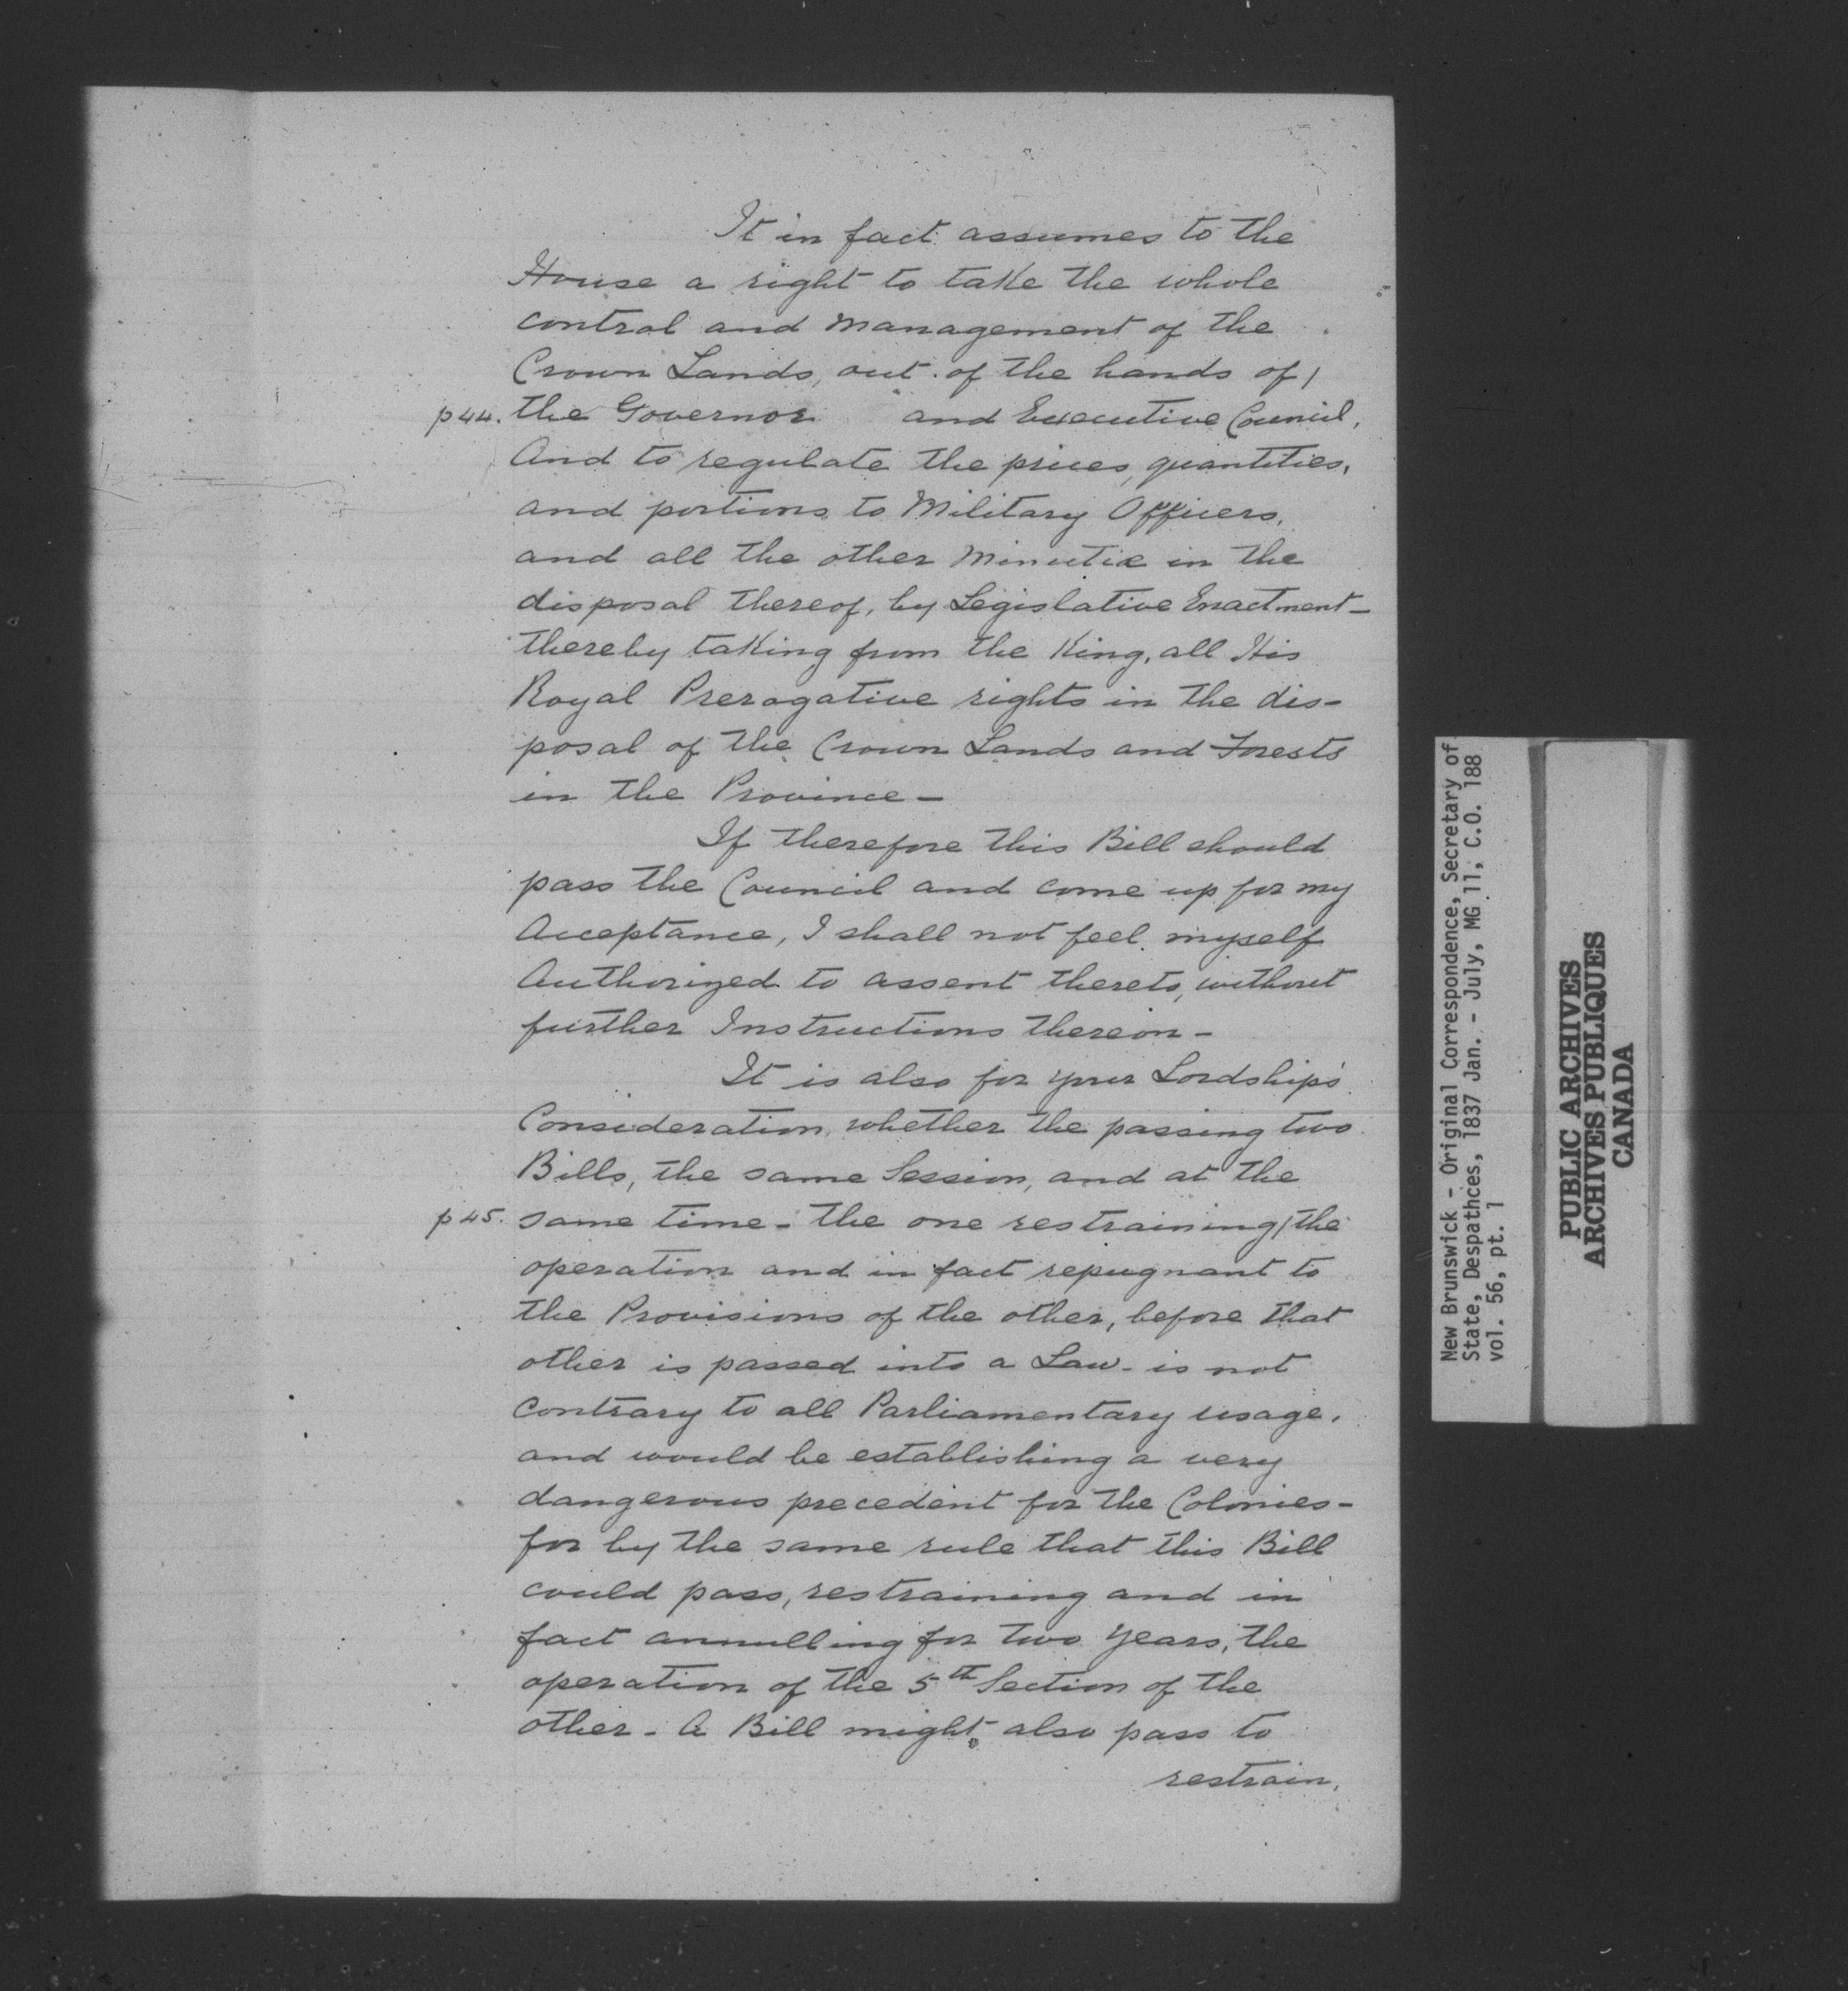 It in fact assumes to the
House a right to take the whole
control and management of the
Crown Lands, out of the hands of /
p 44. the Governor and Executive Council,
And to regulate the prices, quantities,
and portions to Military Officers,
and all the other Minutiæ in the
disposal thereof, by Legislative Enactment –
thereby taking from the King, all His
Royal Prerogative rights in the dis-
posal of the Crown Lands and Forests
in the Province –
If therefore this Bill should
pass the Council and come up for my
Acceptance, I shall not feel myself
Authorized to assent thereto, without
further Instructions thereon –
It is also for your Lordship's
Consideration, whether the passing two
Bills, the same Session, and at the
p 45. same time – the one restraining / the
operation and in fact repugnant to
the Provisions of the other, before that
other is passed into a Law – is not
contrary to all Parliamentary usage,
and would be establishing a very
dangerous precedent for the Colonies –
for by the same rule that this Bill
could pass, restraining and in
fact annulling for two years, the
operation of the 5th Section of the
other – A Bill might also pass to
restrain,
New Brunswick - Original Correspondence, Secretary of
State, Despathces, 1837 Jan. - July, MG 11, C.O. 188
vol. 56, pt. 1
PUBLIC ARCHIVES
ARCHIVES PUBLIQUES
CANADA